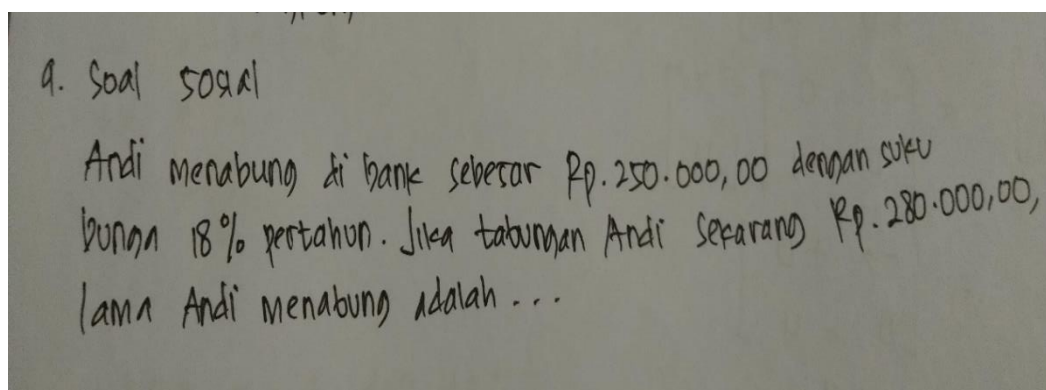 9. Soal sosial
Andi menabung di bank sebesar Rp. 250.000,00 dengan suku
bunga 18% pertahun. Jika tabungan Andi sekarang Rp. 280.000,00,
lama Andi menabung adalah ...